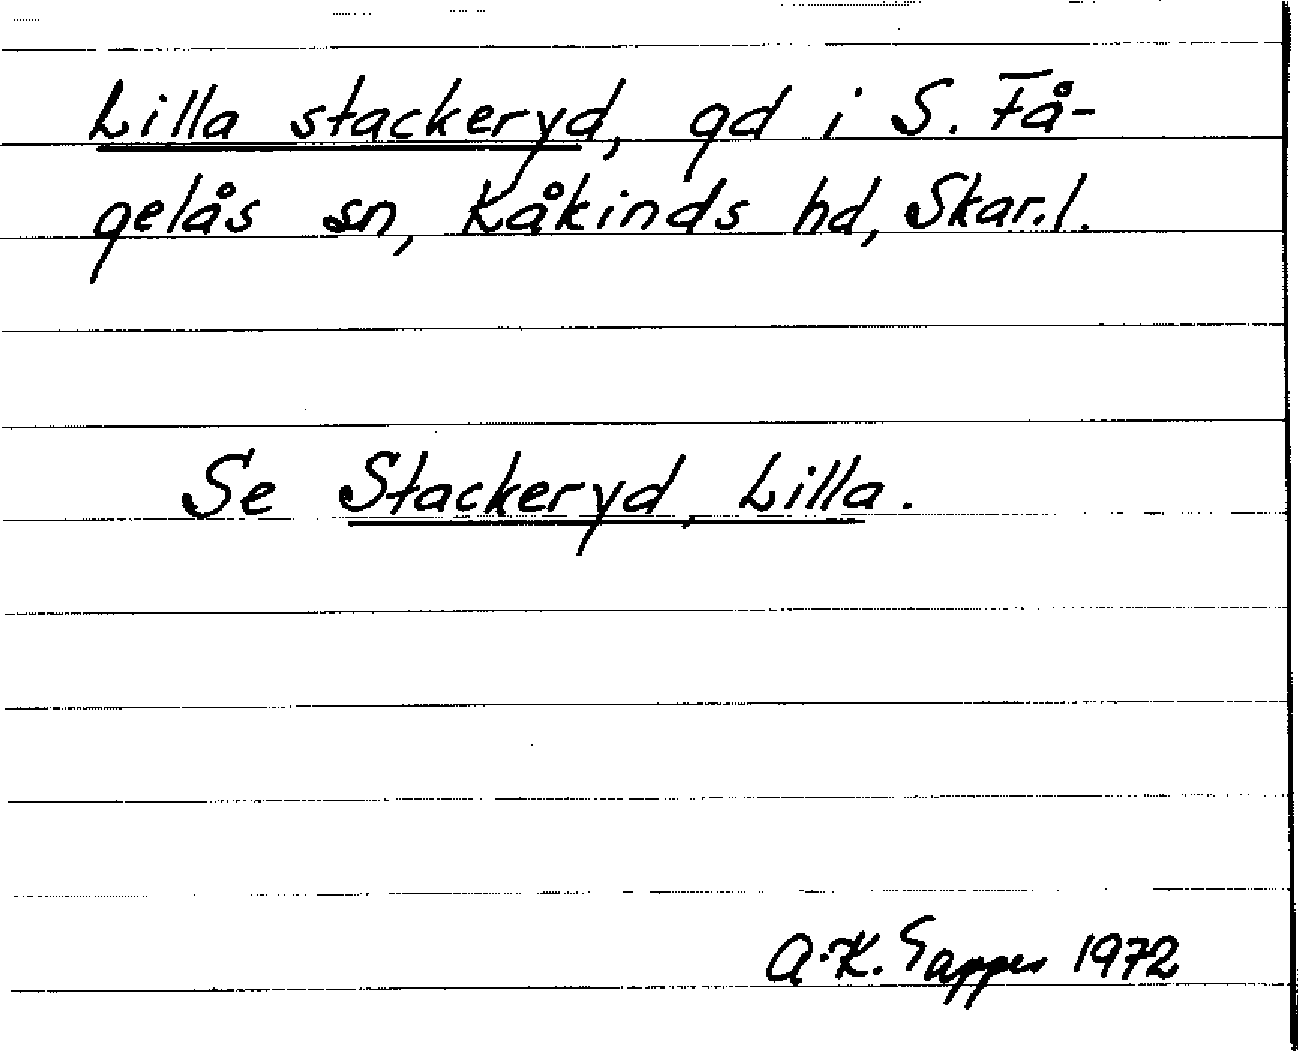 Lilla stackeryd, gd i S. Få-
gelås sn, Kåkinds hd, Skar.l.
Se Stackeryd, Lilla.
A.K. 1972